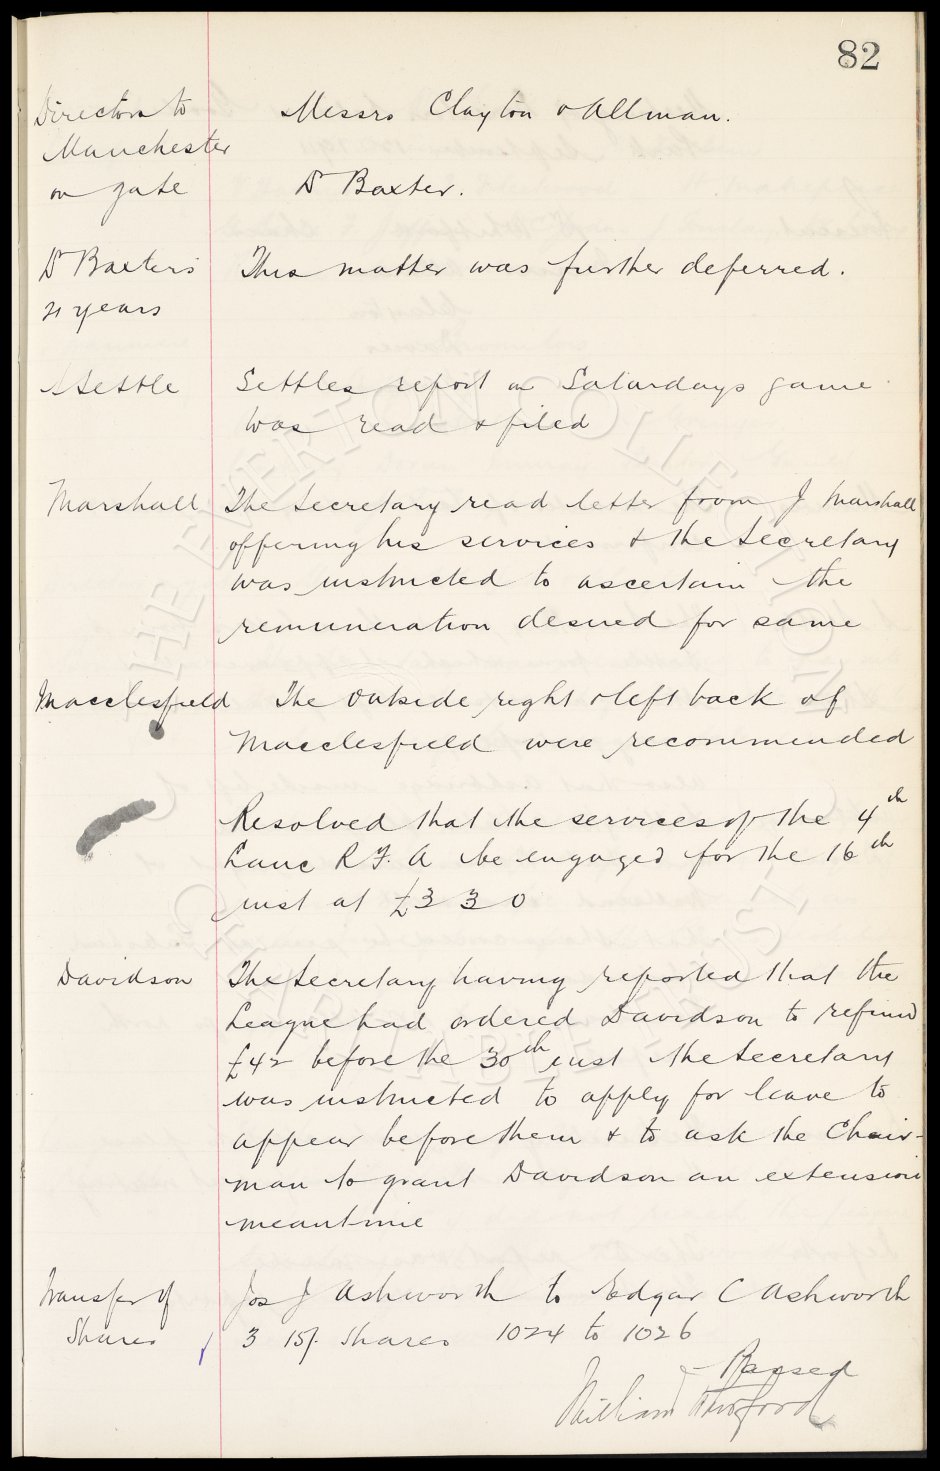 82
Directors to
Manchester
on gate
Messrs Clayton & Allman.
Dr Baxter.
Dr Baxter's
21 years
This matter was further deferred.
Settle
Settles report on Saturdays game
was read & filed
Marshall
The Secretary read letter from J Marshall
offering his services & the Secretary
was instructed to ascertain the
remuneration desired for same
Macclesfield
The outside right & left back of
Macclesfield were recommended
Resolved that the services of the 4th
Lanc R F A be engaged for the 16th
inst at £3 3 0
Davidson
The Secretary having reported that the
League had ordered Davidson to refund
£42 before the 30th inst the Secretary
was instructed to apply for leave to
appear before them & to ask the Chair-
man to grant Davidson an extension
meantime
Transfer of
Shares
Jos J Ashworth to Edgar C Ashworth
3 15/- Shares 1024 to 1026
Passed
William
THE EVERTON COLLECTION